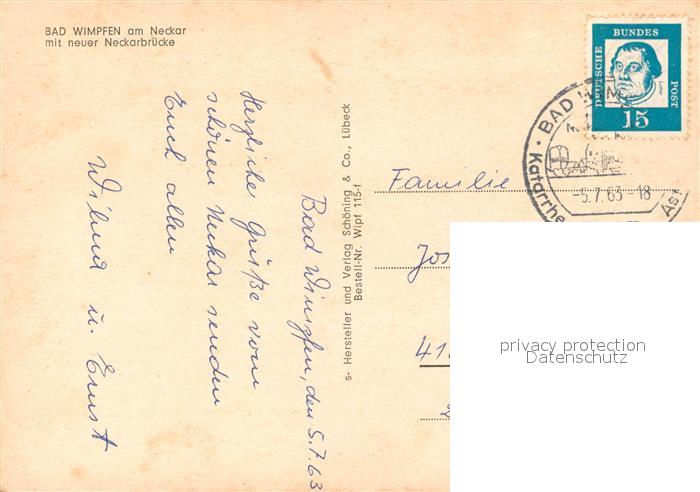 BAD WIMPFEN am Neckar
mit neuer Neckarbrücke
Bad Wimpfen, den 5.7.63
Herzliche Grüße vom
schönen Neckar senden
Euch allen
Wilma u. Ernst
s- Hersteller und Verlag Schöning & Co., Lübeck
Bestell-Nr. Wipf 115-f
DEUTSCHE BUNDES POST
Luther
15
BAD
-5.7.63-18
Katarrhe
Ast
Familie
Jos
41
privacy protection
Datenschutz